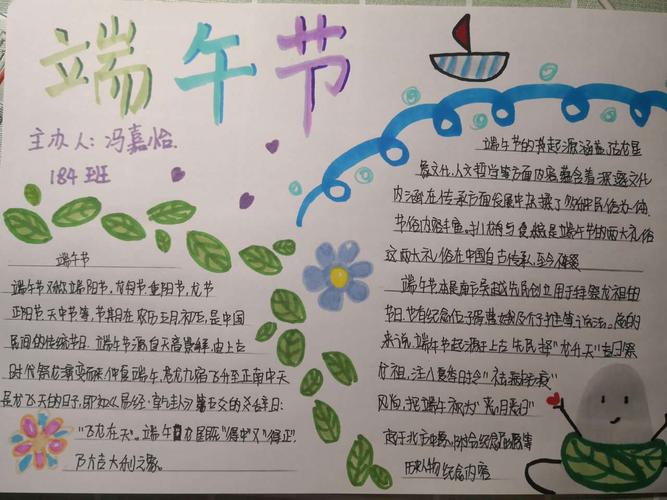 端午节
主办人:冯嘉怡.
184班
端午节
端午节又做端阳节,龙舟节重阳节,龙节
正阳节天中节等,节期在农历五月初五,是中国
民间的传统节日.端午节源自天象崇拜,由上古
时代祭龙演变而来仲夏端午,苍龙七宿飞升至正南中天
是龙飞天的日子,即如《易经·乾卦》第五爻的爻辞曰:
"飞龙在天".端午日龙星既"得中"又"得正",
乃大吉大利之象.
端午节的起源涵盖了古龙星
象文化、人文哲学等方面内容蕴含着深邃文化
内涵在传承方面发展中杂揉了多种民俗为一体,
节俗内容丰富.扒龙舟与食粽是端午节的两大礼俗
这两大礼俗在中国自古传承,至今
端午节本是南方吴越先民创立用于拜祭龙祖的
节日.
来说,端午节起源于上古先民择"龙升天"吉日祭
龙祖,注入夏季时令"祛病防疫"
风尚,把端午视为"恶月恶日"
起于北方中原,附会纪念屈原等
历史人物纪念内容